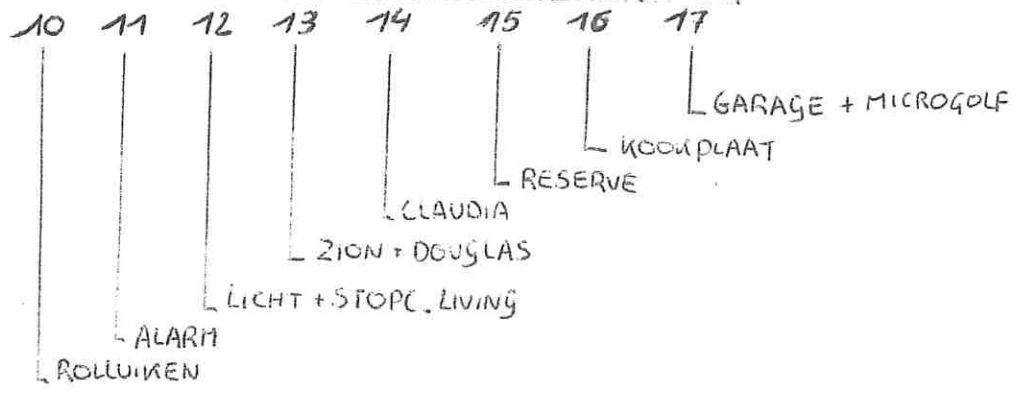 10 11 12 13 14 15 16 17
GARAGE + MICROGOLF
KOOKPLAAT
RESERVE
CLAUDIA
ZION + DOUGLAS
LICHT + STOPC. LIVING
ALARM
ROLLUIKEN